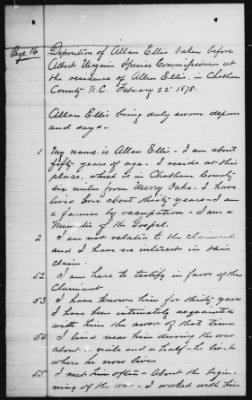 Page 16
Deposition of Allan Ellis taken before
Albert Special Commissioner at
the residence of Allen Ellis. in Chatham
County N.C. February 22d 1878.
Allan Ellis being duly sworn deposes
and says -
1 My name is Allan Ellis - I am about
fifty years of age. I reside at this
place, which is in Chatham County
six miles from Merry Oaks. I have
lived here about thirty years - I am
a farmer by occupation - I am a
Minister of the Gospel.
2 I am not related to the claimant
and I have no interest in this
claim.
52 I am here to testify in favor of the
Claimant
53 I have known him for thirty years
I have been intimately acquainted
with him the most of that time
54 I lived near him during the war
about a mile and a half - he lived
where he now lives
55 I met him often - About the begin-
ning of the war - I worked with him